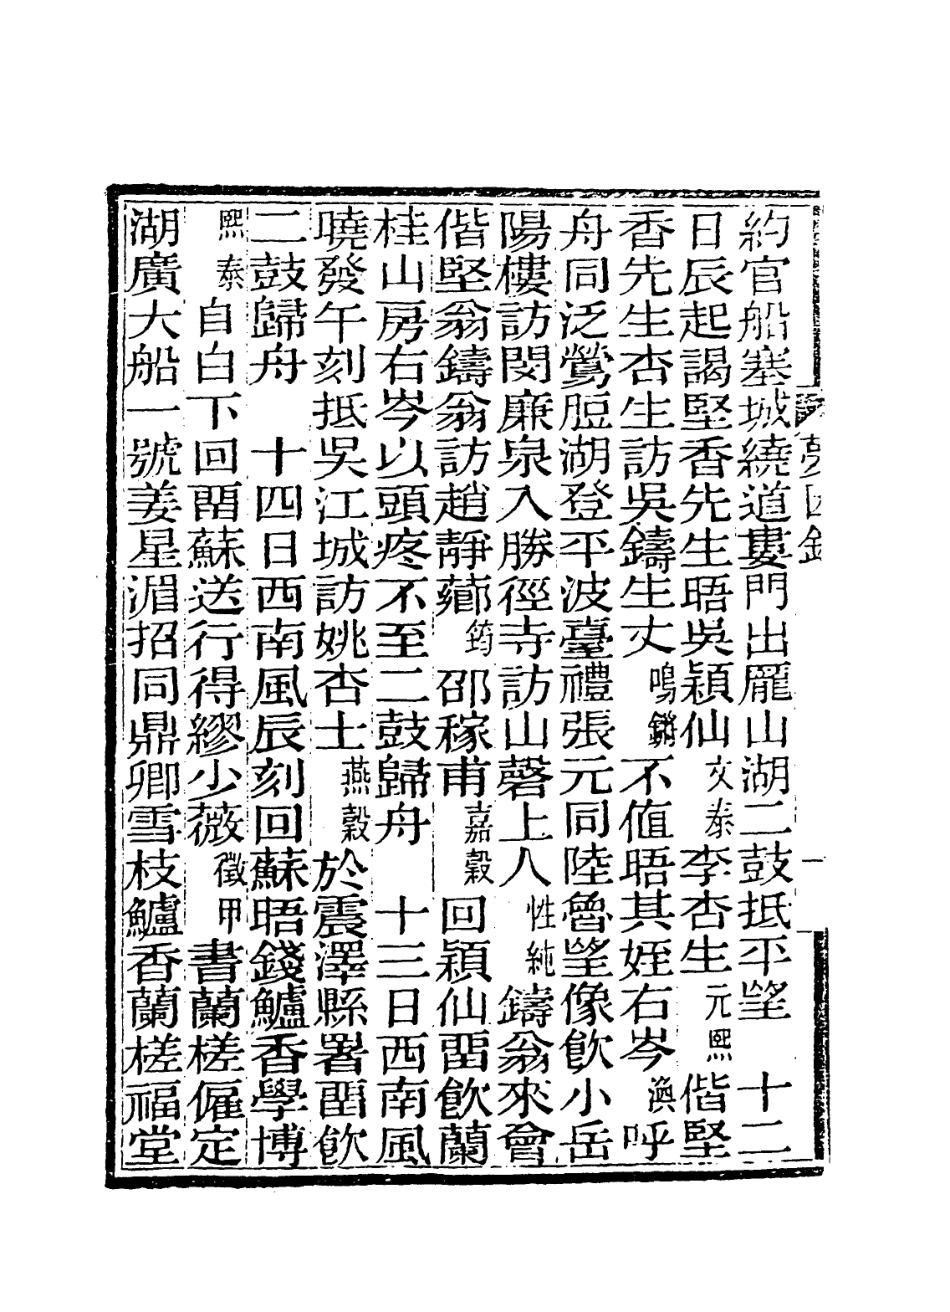 約官船塞城繞道婁門出龐山湖二鼓抵平望　十二
日辰起謁堅香先生晤吳穎仙文泰李杏生元熙偕堅
香先生杏生訪吳鑄生丈鳴鏘不值晤其姪右岑渙呼
舟同泛鶯脰湖登平波臺禮張元同陸魯望像飮小岳
陽樓訪閔廉泉入勝徑寺訪山磬上人性純鑄翁來會
偕堅翁鑄翁訪趙靜薌筠邵稼甫嘉穀回穎仙畱飮蘭
桂山房右岑以頭疼不至二鼓歸舟　十三日西南風
曉發午刻抵吳江城訪姚杏士燕穀於震澤縣署畱飮
二鼓歸舟　十四日西南風辰刻回蘇晤錢鱸香學博
熙泰自白下回畱蘇送行得繆少薇徵甲書蘭槎僱定
湖廣大船一號姜星湄招同鼎卿雪枝鱸香蘭槎福堂